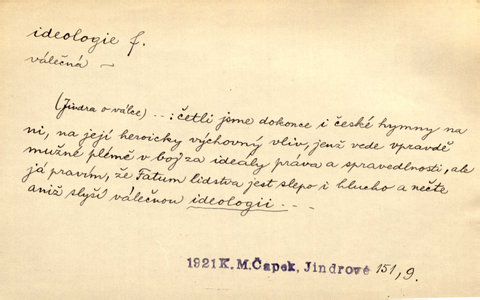 ideologie f.
válečná –
(Jindra o válce) – – : četli jsme dokonce i české hymny na
ni, na její heroicky výchovný vliv, jenž vede vpravdě
mužné plémě v boj za ideály práva a spravedlnosti, ale
já pravím, že Fatum lidstva jest slepo i hlucho a nečte
aniž slyší válečnou ideologii – – –
1921 K. M. Čapek, Jindrové 151, 9.